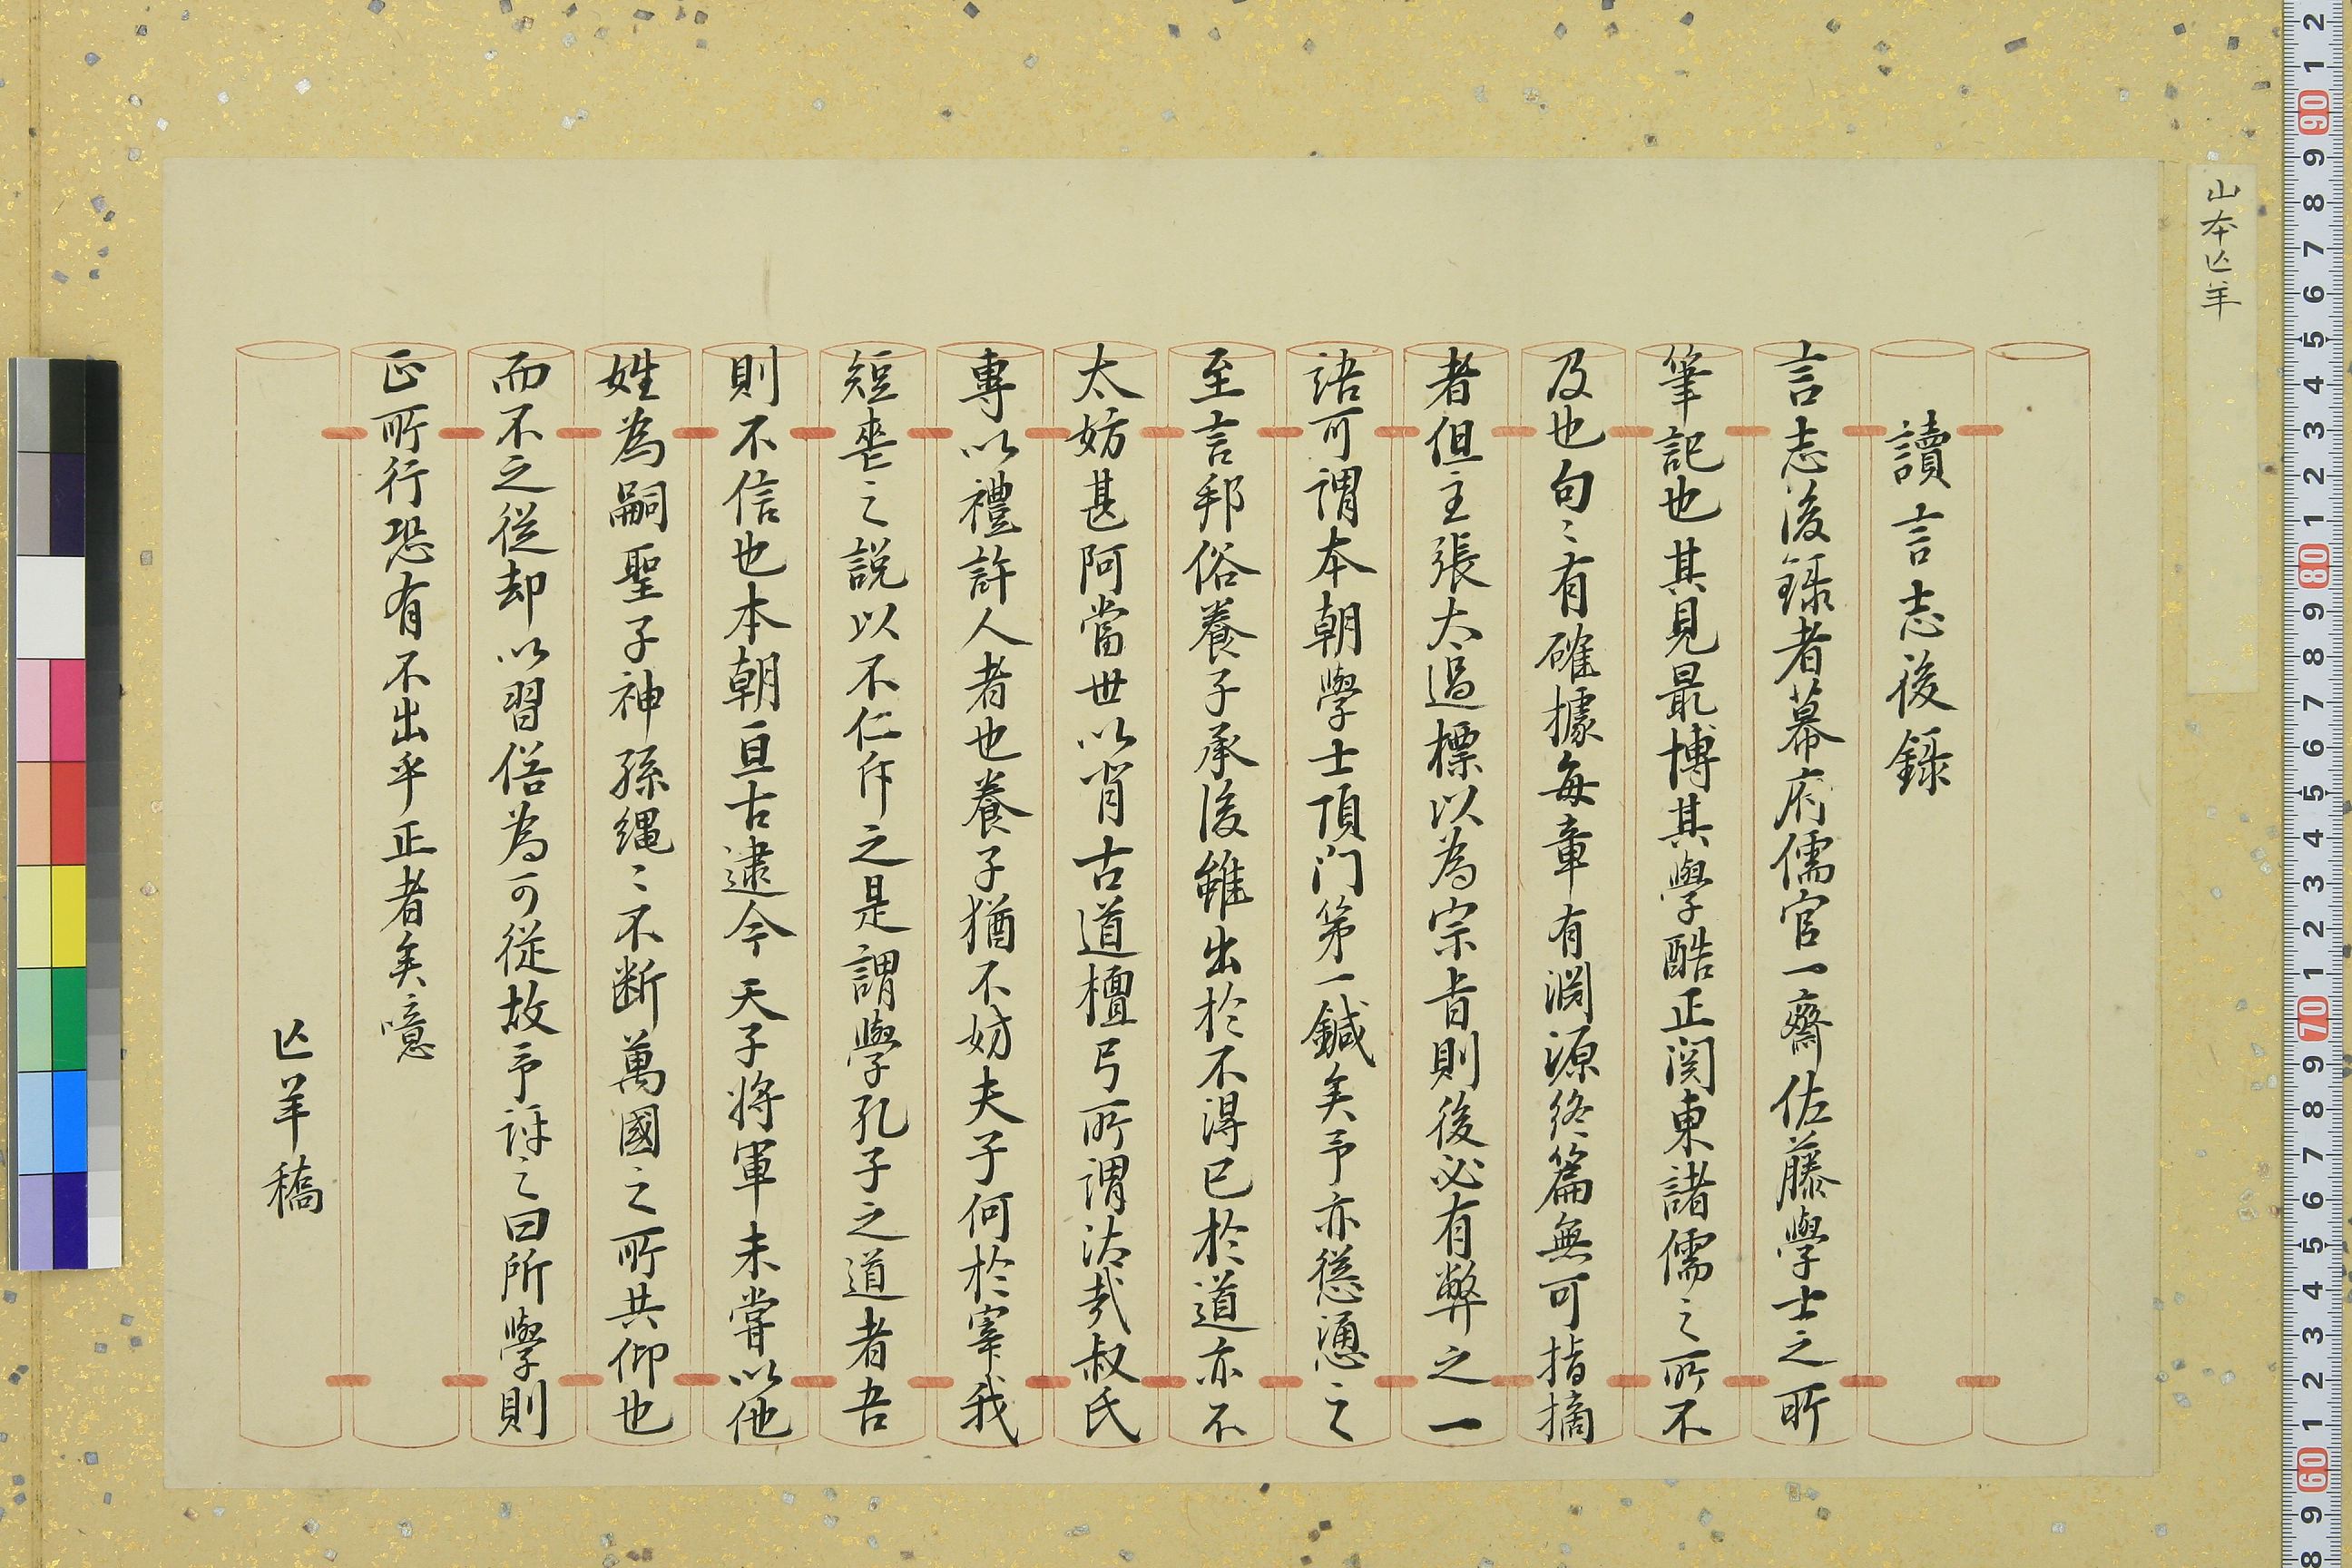 山本亾羊
讀言志後錄
言志後錄者幕府儒官一齋佐藤學士之所
筆記也其見最博其學酷正関東諸儒之所不
及也句〻有確據每章有淵源終篇無可指摘
者但主張太過標以為宗旨則後必有弊之一
語可謂本朝學士頂门第一鍼矣予亦慫慂之
至言邦俗養子承後雖出於不得已於道亦不
太妨甚阿當世以背古道檀弓所謂汰哉叔氏
專以禮許人者也養子猶不妨夫子何於宰我
短喪之說以不仁斥之是謂學孔子之道者吾
則不信也本朝亘古逮今天子將軍未嘗以他
姓為嗣聖子神孫繩〻不断萬國之所共仰也
而不之從却以習俗為可從故予評之曰所學則
正所行恐有不出乎正者矣噫
亾羊稿
2
1
90
9
8
7
6
5
4
3
2
1
80
9
8
7
6
5
4
3
2
1
70
9
8
7
6
5
4
3
2
1
60
9
8